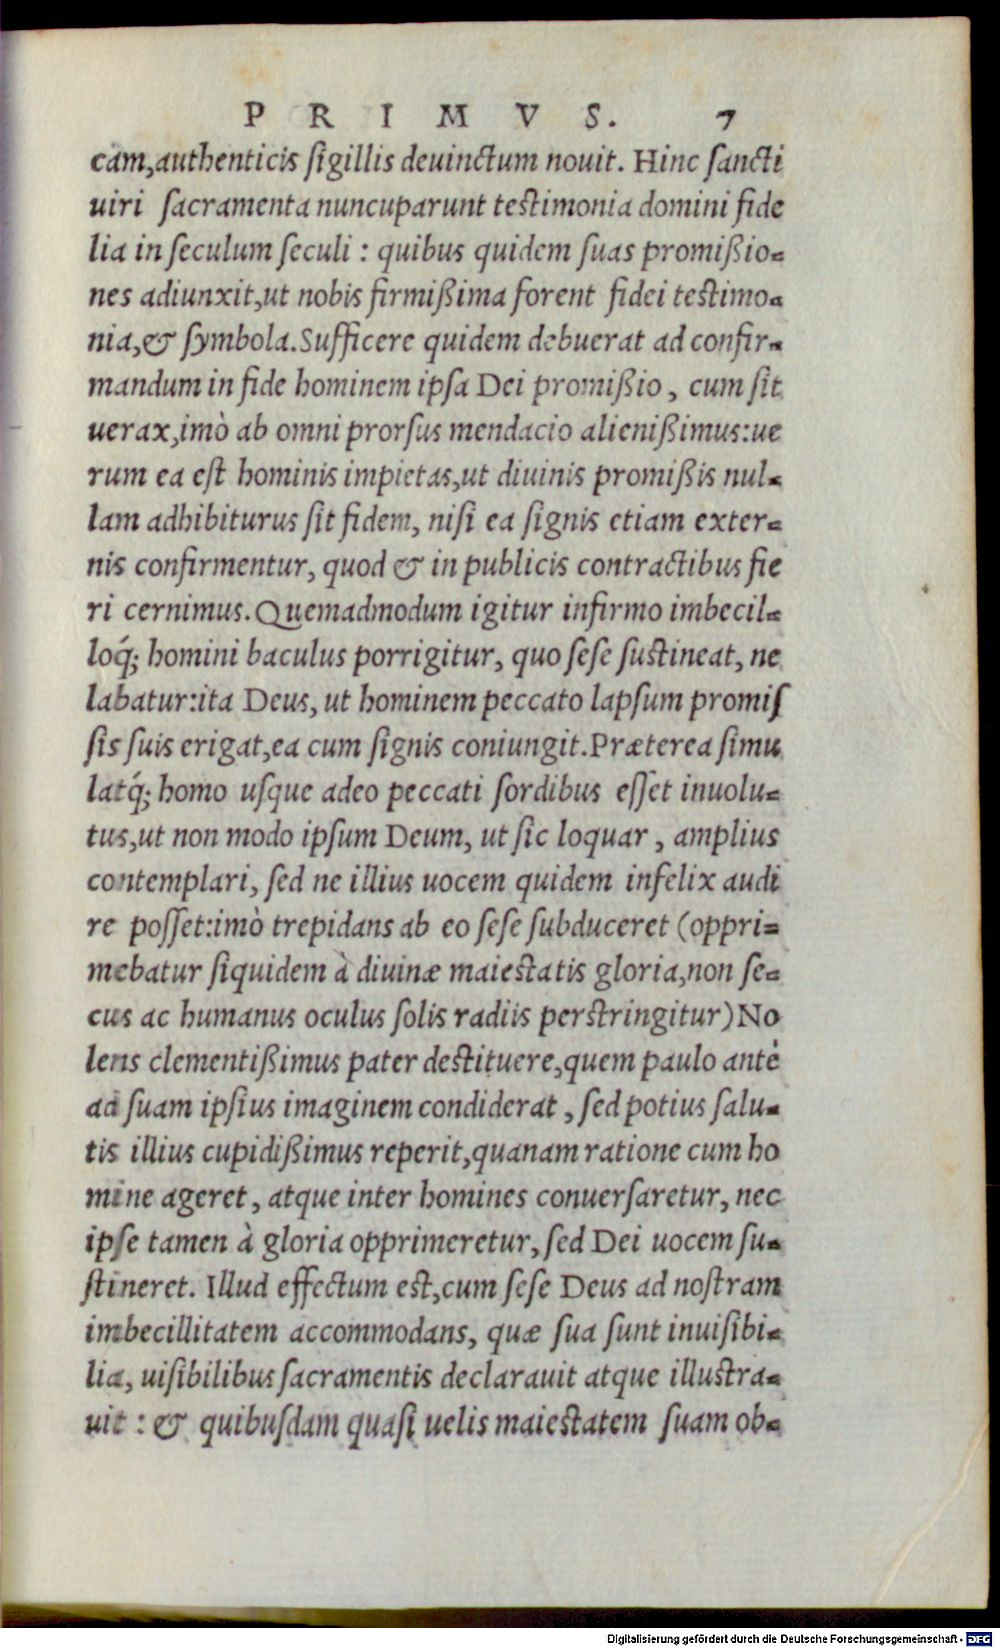 PRIMVS. 7
cam,authenticis sigillis deuinctum nouit. Hinc sancti
uiri sacramenta nuncuparunt testimonia domini fide
lia in seculum seculi : quibus quidem suas promißio-
nes adiunxit,ut nobis firmißima forent fidei testimo-
nia,& symbola.Sufficere quidem debuerat ad confir-
mandum in fide hominem ipsa Dei promißio, cum sit
uerax,imò ab omni prorsus mendacio alienißimus:ue
rum ea est hominis impietas,ut diuinis promißis nul-
lam adhibiturus sit fidem, nisi ea signis etiam exter-
nis confirmentur, quod & in publicis contractibus fie
ri cernimus. Quemadmodum igitur infirmo imbecil-
loq́; homini baculus porrigitur, quo sese sustineat, ne
labatur:ita Deus, ut hominem peccato lapsum promis
sis suis erigat,ea cum signis coniungit.Præterea simu
latq́; homo usque adeo peccati sordibus esset inuolu-
tus,ut non modo ipsum Deum, ut sic loquar, amplius
contemplari, sed ne illius uocem quidem infelix audi
re posset:imò trepidans ab eo sese subduceret (oppri-
mebatur siquidem à diuinæ maiestatis gloria,non se-
cus ac humanus oculus solis radiis perstringitur)No
lens clementißimus pater destituere,quem paulo antè
ad suam ipsius imaginem condiderat, sed potius salu-
tis illius cupidißimus reperit,quanam ratione cum ho
mine ageret, atque inter homines conuersaretur, nec
ipse tamen à gloria opprimeretur, sed Dei uocem su-
stineret. Illud effectum est,cum sese Deus ad nostram
imbecillitatem accommodans, quæ sua sunt inuisibi-
lia, uisibilibus sacramentis declarauit atque illustra-
uit : & quibusdam quasi uelis maiestatem suam ob-
Digitalisierung gefördert durch die Deutsche Forschungsgemeinschaft - DFG